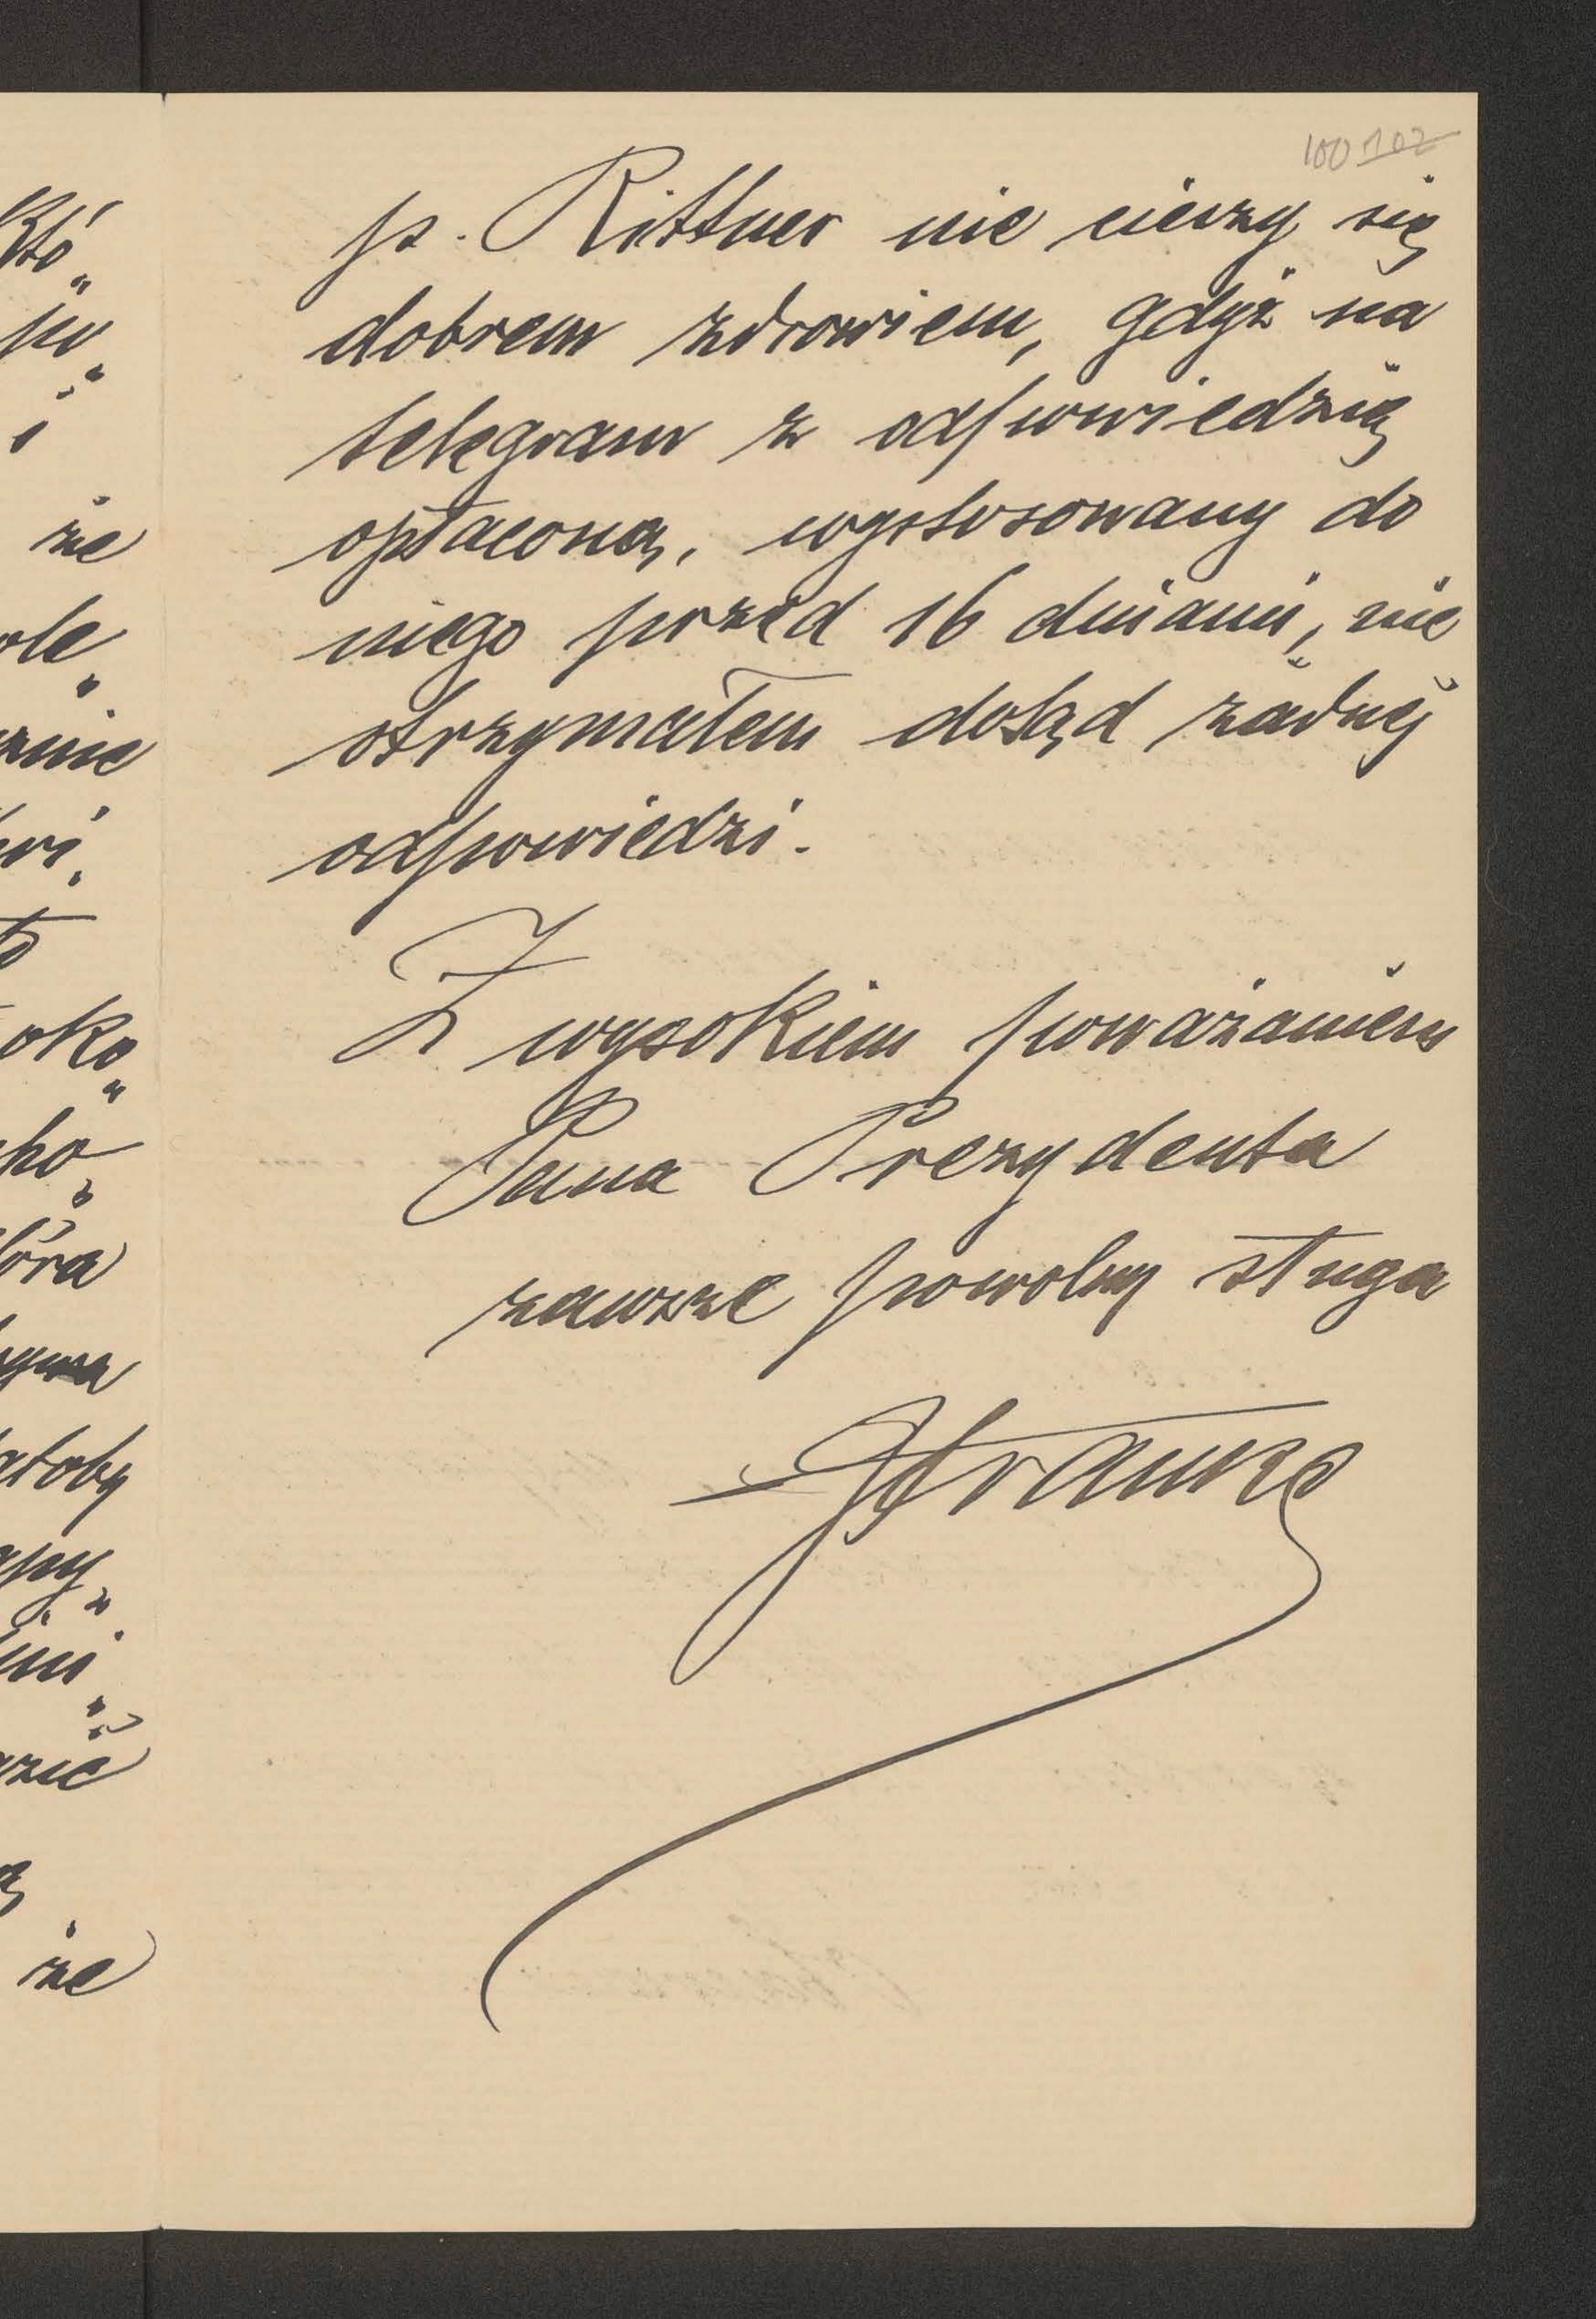 100 102
p. Rittner nie cieszy się
dobrem zdrowiem, gdyż na
telegram z odpowiedzią
opłaconą, wystosowany do
niego przed 16 dniami, nie
otrzymałem dotąd żadnej
odpowiedzi.
Z wysokiem poważaniem
Pana Prezydenta
zawsze powolny sługa
że
oko„
że